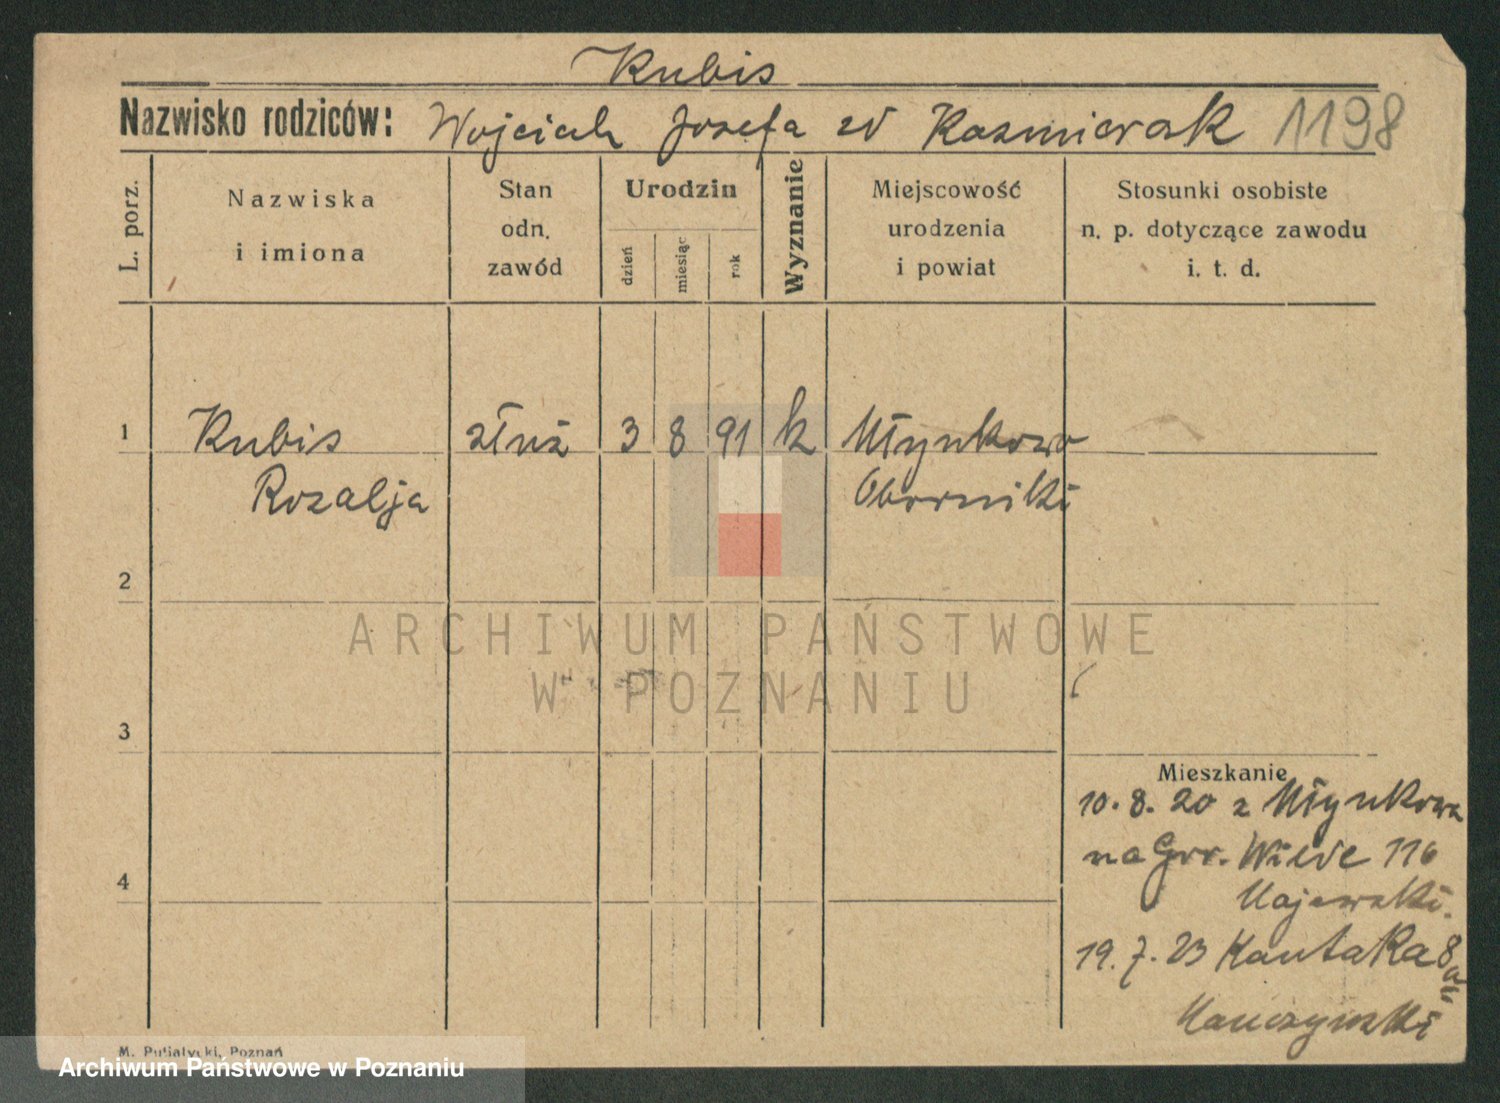 Kubis
Nazwisko rodziców: Wojciech Józefa zd Kazmierak 1198
L. porz.
Nazwiska
i imiona
Stan
odn.
zawód
Urodzin
dzień
miesiąc
rok
Wyznanie
Miejscowość
urodzenia
i powiat
Stosunki osobiste
n. p. dotyczące zawodu
i. t. d.
1 Kubis służ 3 8 91 k Młynkowo
Rozalja Oborniki
2
ARCHIWUM PAŃSTWOWE
W POZNANIU
3
Mieszkanie
10.8.20 z Młynkowa
na Grr. Wilde 116
Majewski.
4
19.7.23 Kantaka 8
M. Putiatycki, Poznań
Archiwum Państwowe w Poznaniu